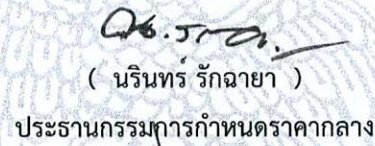 ( นรินทร์ รักฉายา )
ประธานกรรมการกำหนดราคากลาง